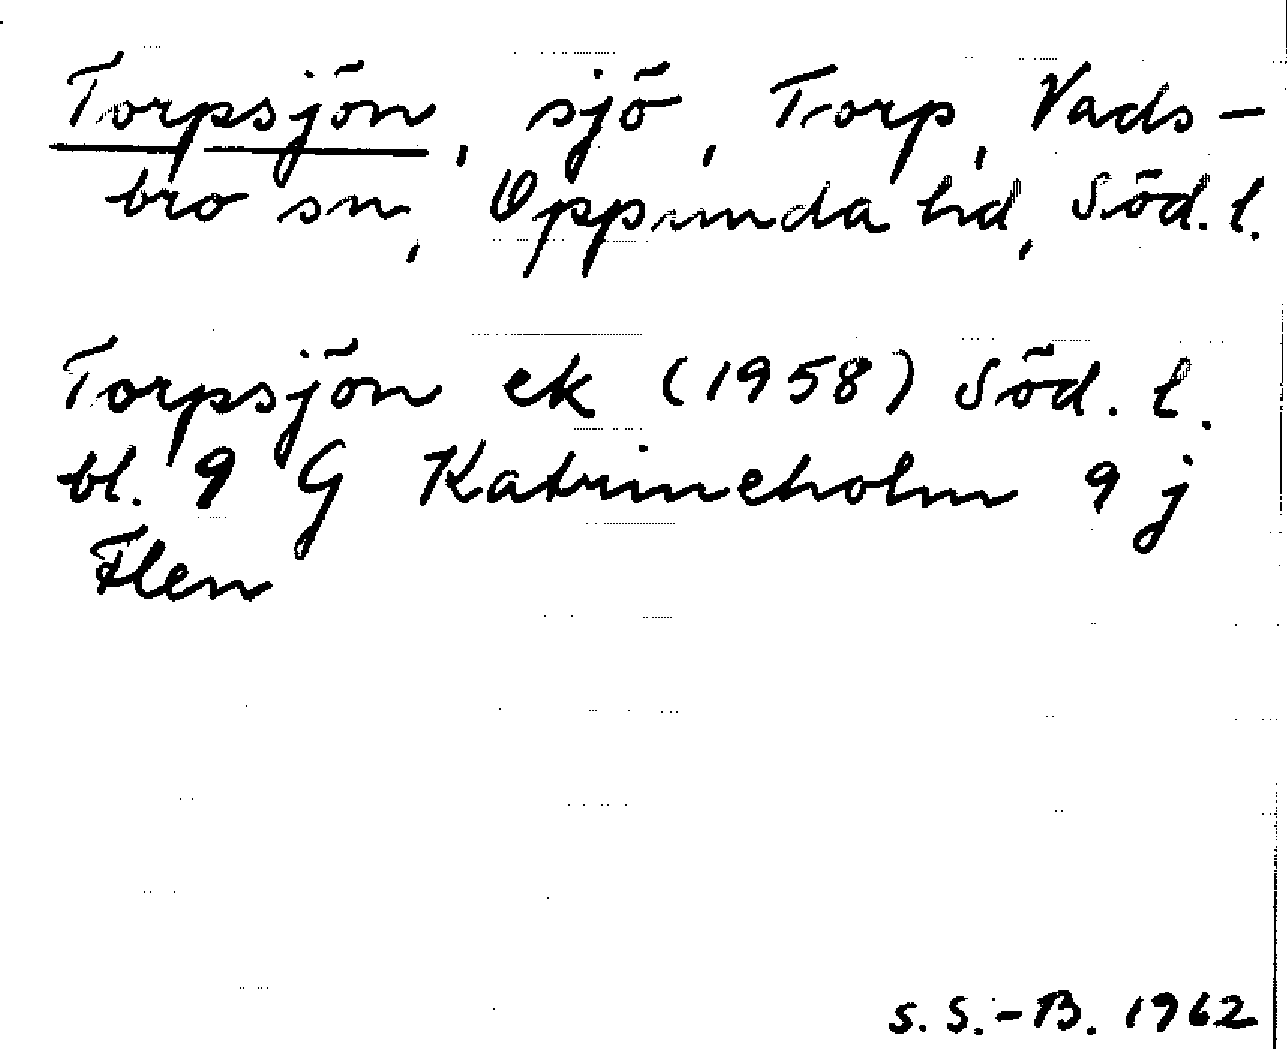 Torpsjön, sjö, Torp, Vads-
bro sn, Oppunda hd, Söd. l.
Torpsjön ek (1958) Söd. l.
bl. 9 G Katrineholm 9 j
Flen
S. S.-B. 1962